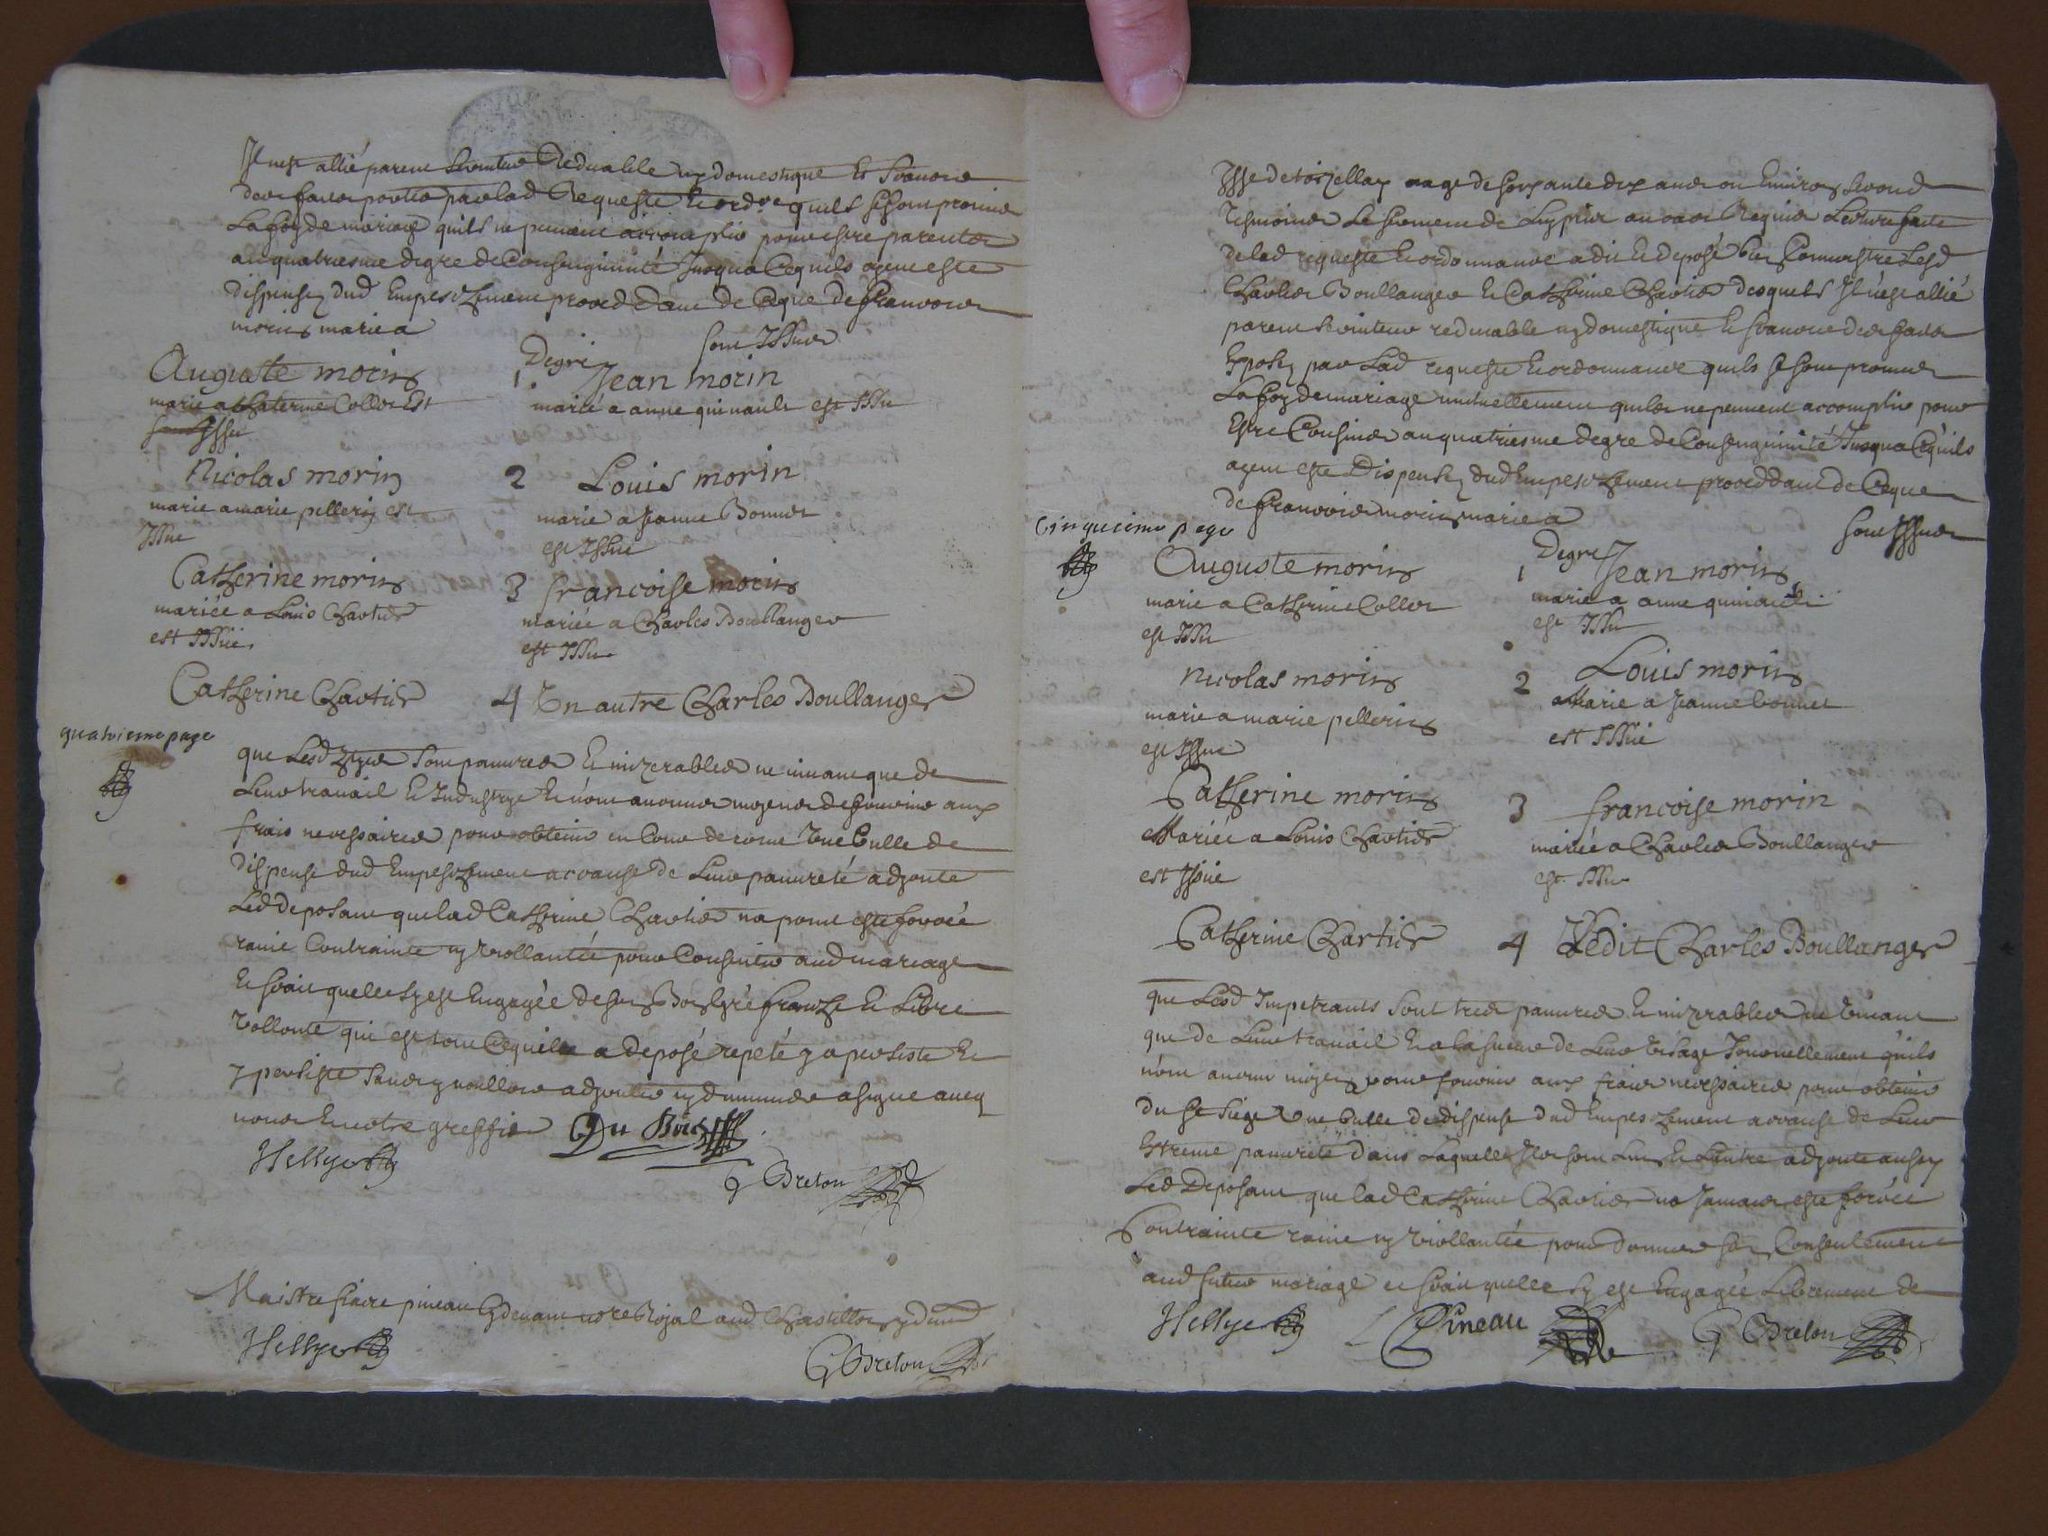 Il n'est allié parent serviteur redevable ny domestique Et
des faits portés par lad Requeste Et ordce quils se sont promis
La foy de mariage quils ne peuvent accomplir pour estre parents
au quatriesme degre de Consenginnité Jusqua Ce quils ayent esté
dispensez dud Empeschement proceddant de Ce que de francois
morin marie a
sont Issus
Auguste morin
marie a Chaterine Collet Est
Issu
Degrez
1
Jean morin
marié a anne quinault est Issu
Nicolas morin
marie a marie pellerin est
Issue
2
Louis morin
marie a Jeanne Bonnet
est Issue
Catherine morin
mariée a Louis Chartier
est Issüe
3
francoise morin
mariée a Charles Boullanger
est Issu
Catherine Chartier
4 Un autre Charles Boullanger
quatriesme page
que Lesd sont pauvres Et mizerables ne vivant que de
Leur travail Et Industrye Et n'ont aucuns moyens de fournir aux
frais necessaires pour obtenir en Cour de rome Une bulle de
dispense dud Empeschement a cause de Leur pauvreté adjoute
Led deposant que lad Catherine Chartier na point esté forcée
ravie Contrainte ny viollantée pour Consentir aud mariage
Et scait quelle sy est Engagée de son Bon gré franche Et Libre
vollonté qui est tout Ce quil a deposé repeté y a persisté Et
y persiste sans y voulloir adjouter ny diminuer a signé avecq
nous Et notre greffier Du Bois
Hellye
G Breton
Maistre fiacre pineau Cy devant nore Royal aud Chastillon y dem
Hellye
G Breton
age de soixante dix ans ou Environ second
Tesmoing Le serment de Luy pris au cas Requis Lecture faite
de lad requeste Et ordonnance a dit Et deposé bien Connoistre Lesd
Charles Boullanger Et Catherine Chartier desquels Il n'est allié
parent serviteur redevable ny domestique Et des faits
Exposez par Lad requeste Et ordonnance quils se sont promis
La foy de mariage mutuellement quils ne peuvent accomplir pour
Estre Cousins au quatriesme degre de Consenginnité Jusqua Ce quils
ayent esté Dispensez dud Empeschement proceddant de Ce que
de francois morin marie a
sont Issus
Cinquiesme page
Auguste morin
marie a Catherine Collet
est Issu
Degrez
1
Jean morin
marie a anne quinault
est Issu
Nicolas morin
marie a marie pellerin
est Issue
2
Louis morin
Marie a Jeanne bonnet
est Issüe
Catherine morin
Mariée a Louis Chartier
est Issüe
3
francoise morin
mariée a Charles Boullanger
est Issu
Catherine Chartier
4 Ledit Charles Boullanger
que Lesd Impetrants sont tres pauvres Et mizerables ne vivant
que de Leur travail Et a la sueur de Leur visage Journellement quils
n'ont aucun moyen pour fournir aux frais necessaires pour obtenir
du St Siege Une bulle de dispense dud Empeschement a cause de Leur
Extreme pauvreté dans Laquelle Ils sont Lun Et Lautre adjoute aussy
Led Deposant que lad Catherine Chartier na Jamais esté forcée
Contrainte ravie ny viollantée pour donner son Consentement
aud futur mariage et scait quelle sy est Engagée Librement de
Hellye
Pineau
G Breton